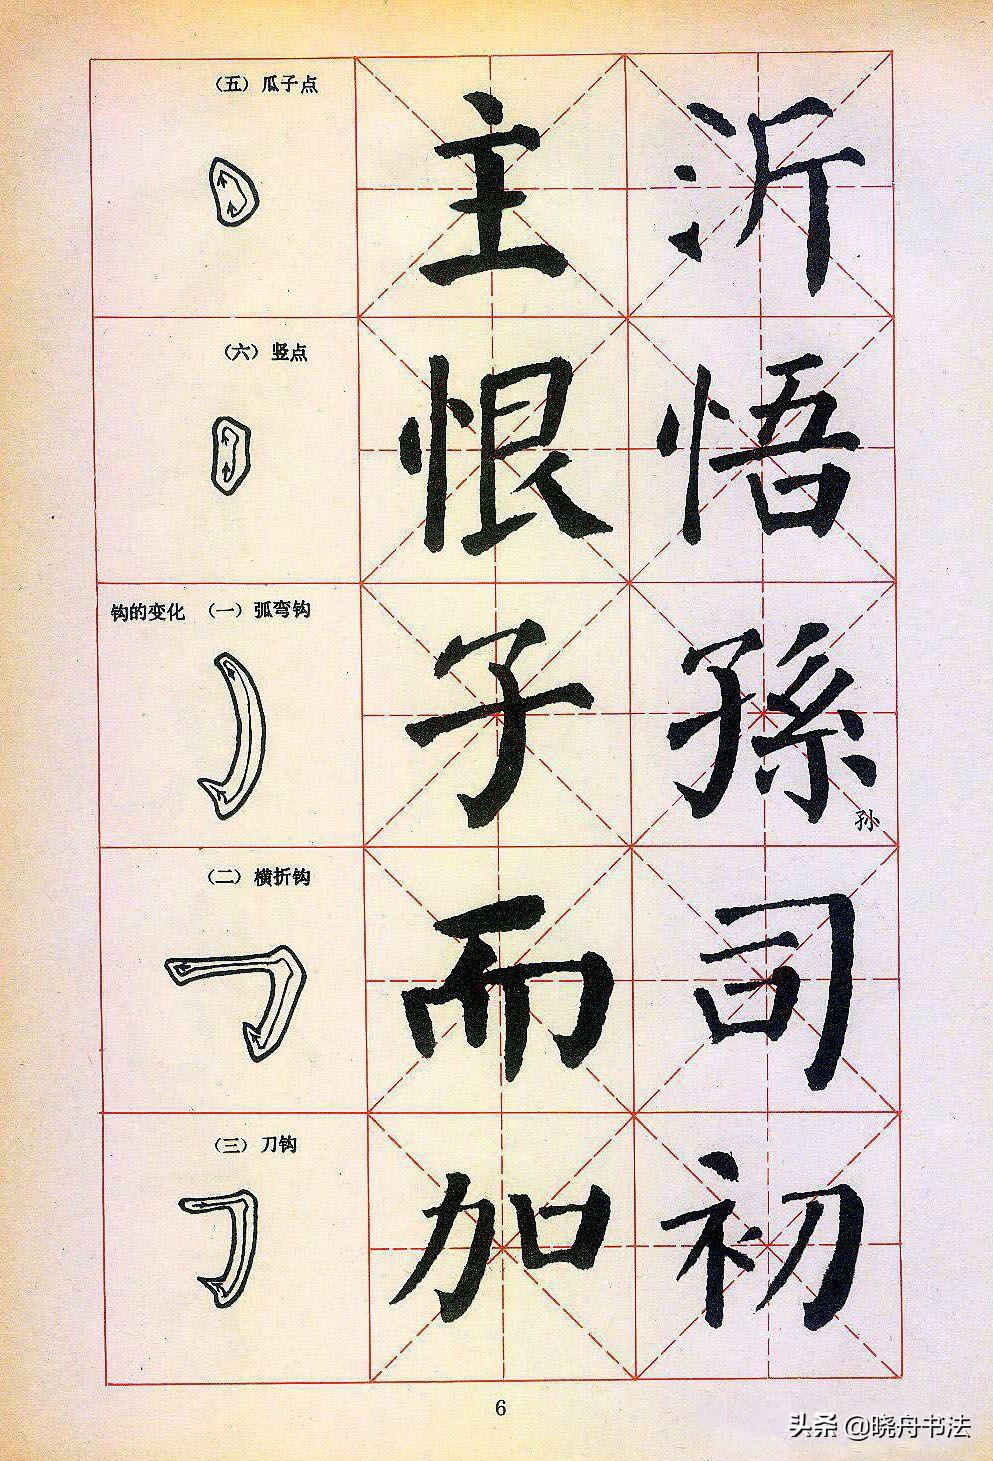 （五）瓜子点
主 沂
（六）竖点
恨 悟
钩的变化 （一）弧弯钩
子 孫
孙
（二）横折钩
而 司
（三）刀钩
加 初
6
头条 @晓舟书法